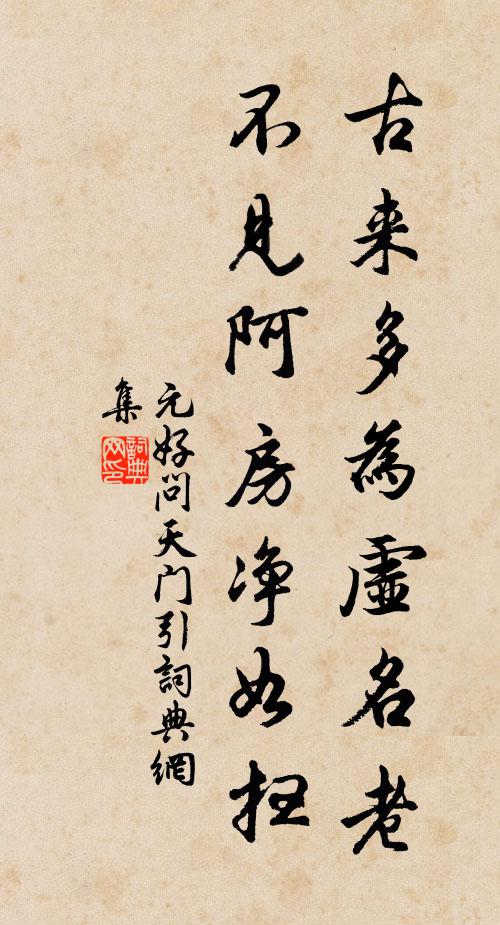 古来多為虛名老
不見阿房净如扫
元好问天门引詞典網
集
詞典网印